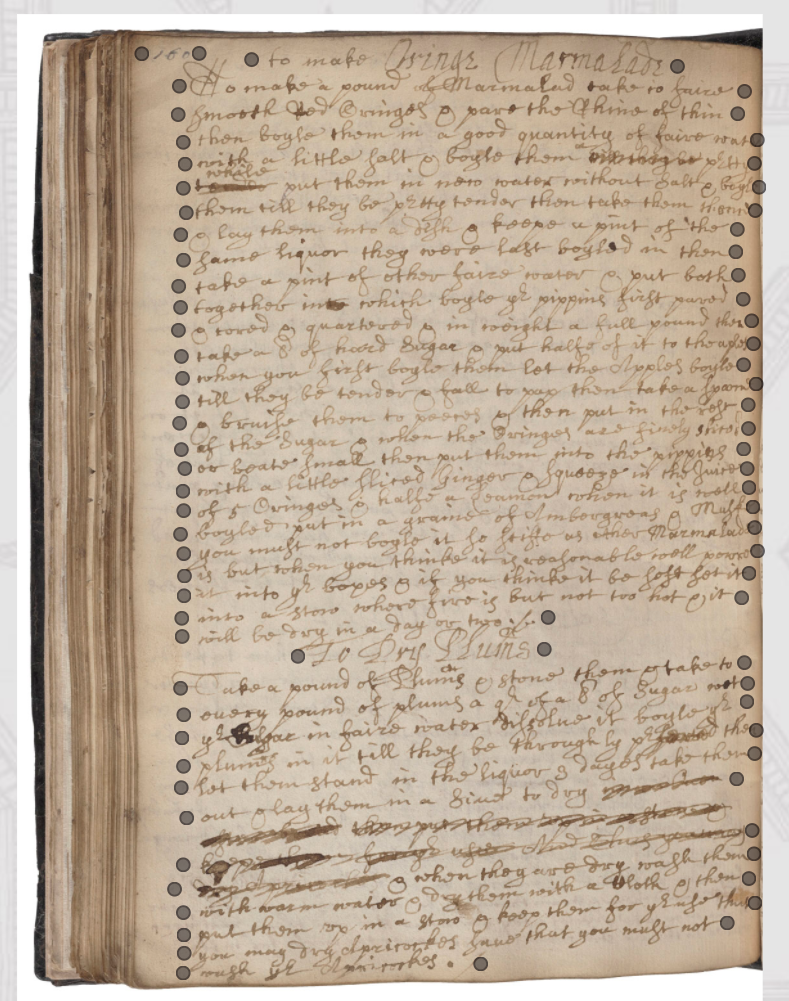 160
to make Oringe Marmalade
To make a pound of Marmalad take 10 faire
smooth Red Oringes & pare the Rhine of thin
then boyle them in a good quantity of faire wat
with a little salt & boyle them prtty
while put them in new water without salt & boyl
them till they be prtty tender then take them
& lay them into a dish & keepe a pint of the
same liquor they were last boyled in then
take a pint of other faire water & put both
together into which boyle yr pippins first pared
& cored & quartered & in weight a full pound then
take a of hard Sugar & put halfe of it to the aples
when you first boyle them let the Apples boyle
till they be tender & fall to pap then take a spoon
& bruise them to peeces & then put in the rest
of the Sugar & when the Oringes are finely sliced
or beate small then put them into the pippins
with a little sliced Ginger & squeeze in the Juice
of 5 Oringes & halfe a Leamon when it is well
boyled put in a graine of Ambergreas & Musk
you must not boyle it so stiffe as other Marmalad
is but when you thinke it is reasonable well powre
it into yr boxes & if you thinke it be soft set it
into a stow where fire is but not too hot & it
will be dry in a day or two
To Dry Plums
Take a pound of Plums & stone them & take to
every pound of plums a qr of a of Sugar wet
yr Sugar in faire water dissolve it boyle yr
plums in it till they be throughly the
let them stand in the liquor 3 dayes take them
out & lay them in a Sive to dry
then put them
keepe them
& when they are dry wash them
with warm water & dry them with a Cloth & then
put them up in a stow & keep them for yr use thus
you may dry Apricockes save that you must not
wash yr Apricockes.